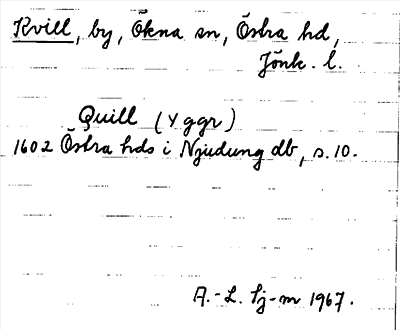 Kvill, by, Ökna sn, Östra hd,
Jönk. l.
Quill (4 ggr)
1602 Östra hds i Njudung db, s. 10.
A.-L. Sj-m 1967.